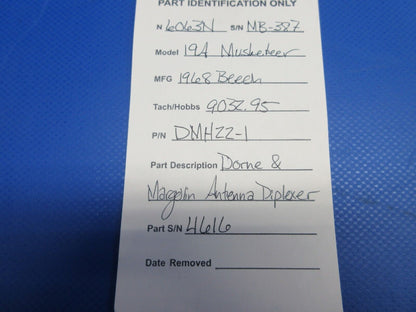 PART IDENTIFICATION ONLY
N 6063N S/N MB-387
Model 19A Musketeer
MFG 1968 Beech
Tach/Hobbs 9032.95
P/N DMH22-1
Part Description Dorne &
Margolin Antenna Diplexer
Part S/N 4616
Date Removed